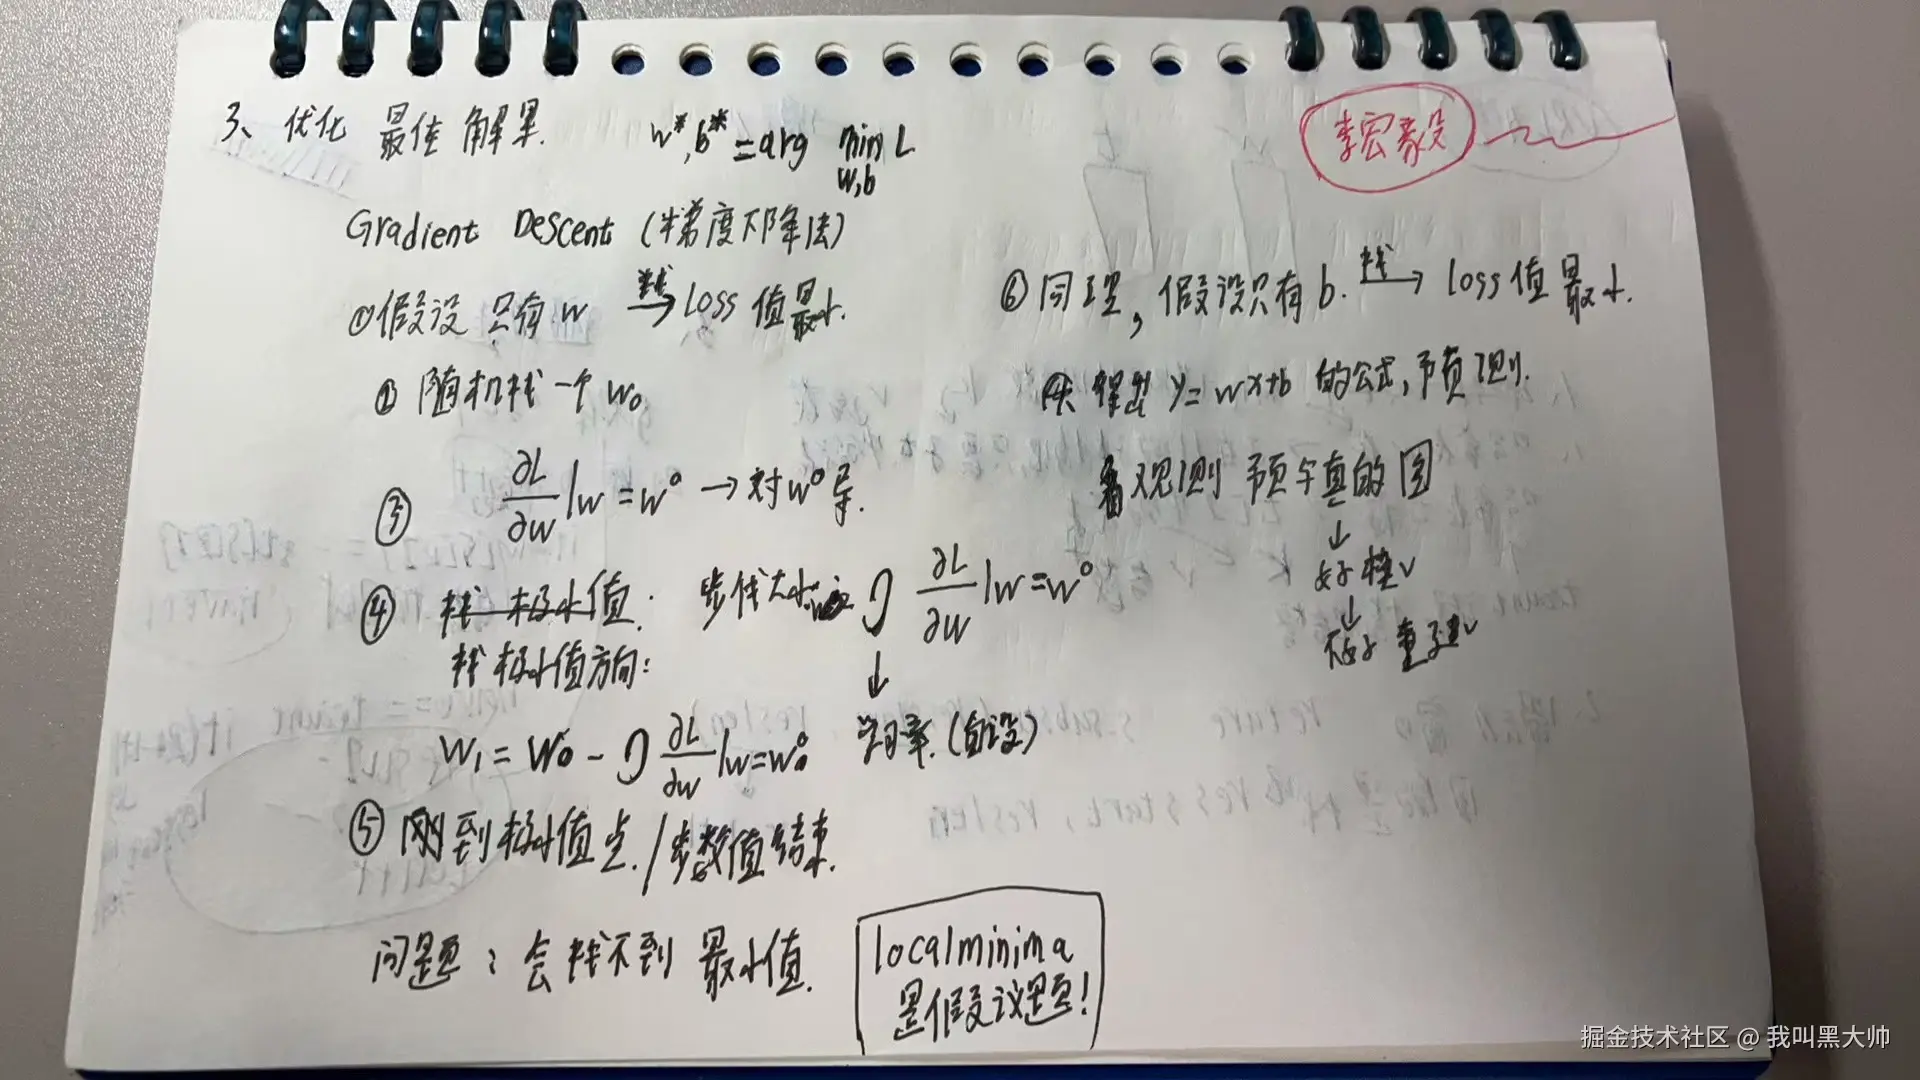 3、优化 最佳解果. w*,b* = arg min L
w,b
李宏毅
Gradient Descent (梯度下降法)
①假设只有w 找→ loss值最小.
② 随机找一个 w₀
③ ∂L/∂w |w=w⁰ → 对w⁰导.
④ 找极小值. 步伐大小 η ∂L/∂w |w=w⁰
↓
找极小值方向:
学习率.(自设)
w₁ = w₀ - η ∂L/∂w |w=w₀⁰
⑤ 刚到极小值点./步数值结束.
问题: 会找不到最小值.
localminima
是假议题!
⑥ 同理, 假设只有b. 找→ loss值最小.
得出 y=wx+b 的公式,预测.
观测 预与真的图
↓
好 棒√
↓
不好 重√
掘金技术社区 @ 我叫黑大帅